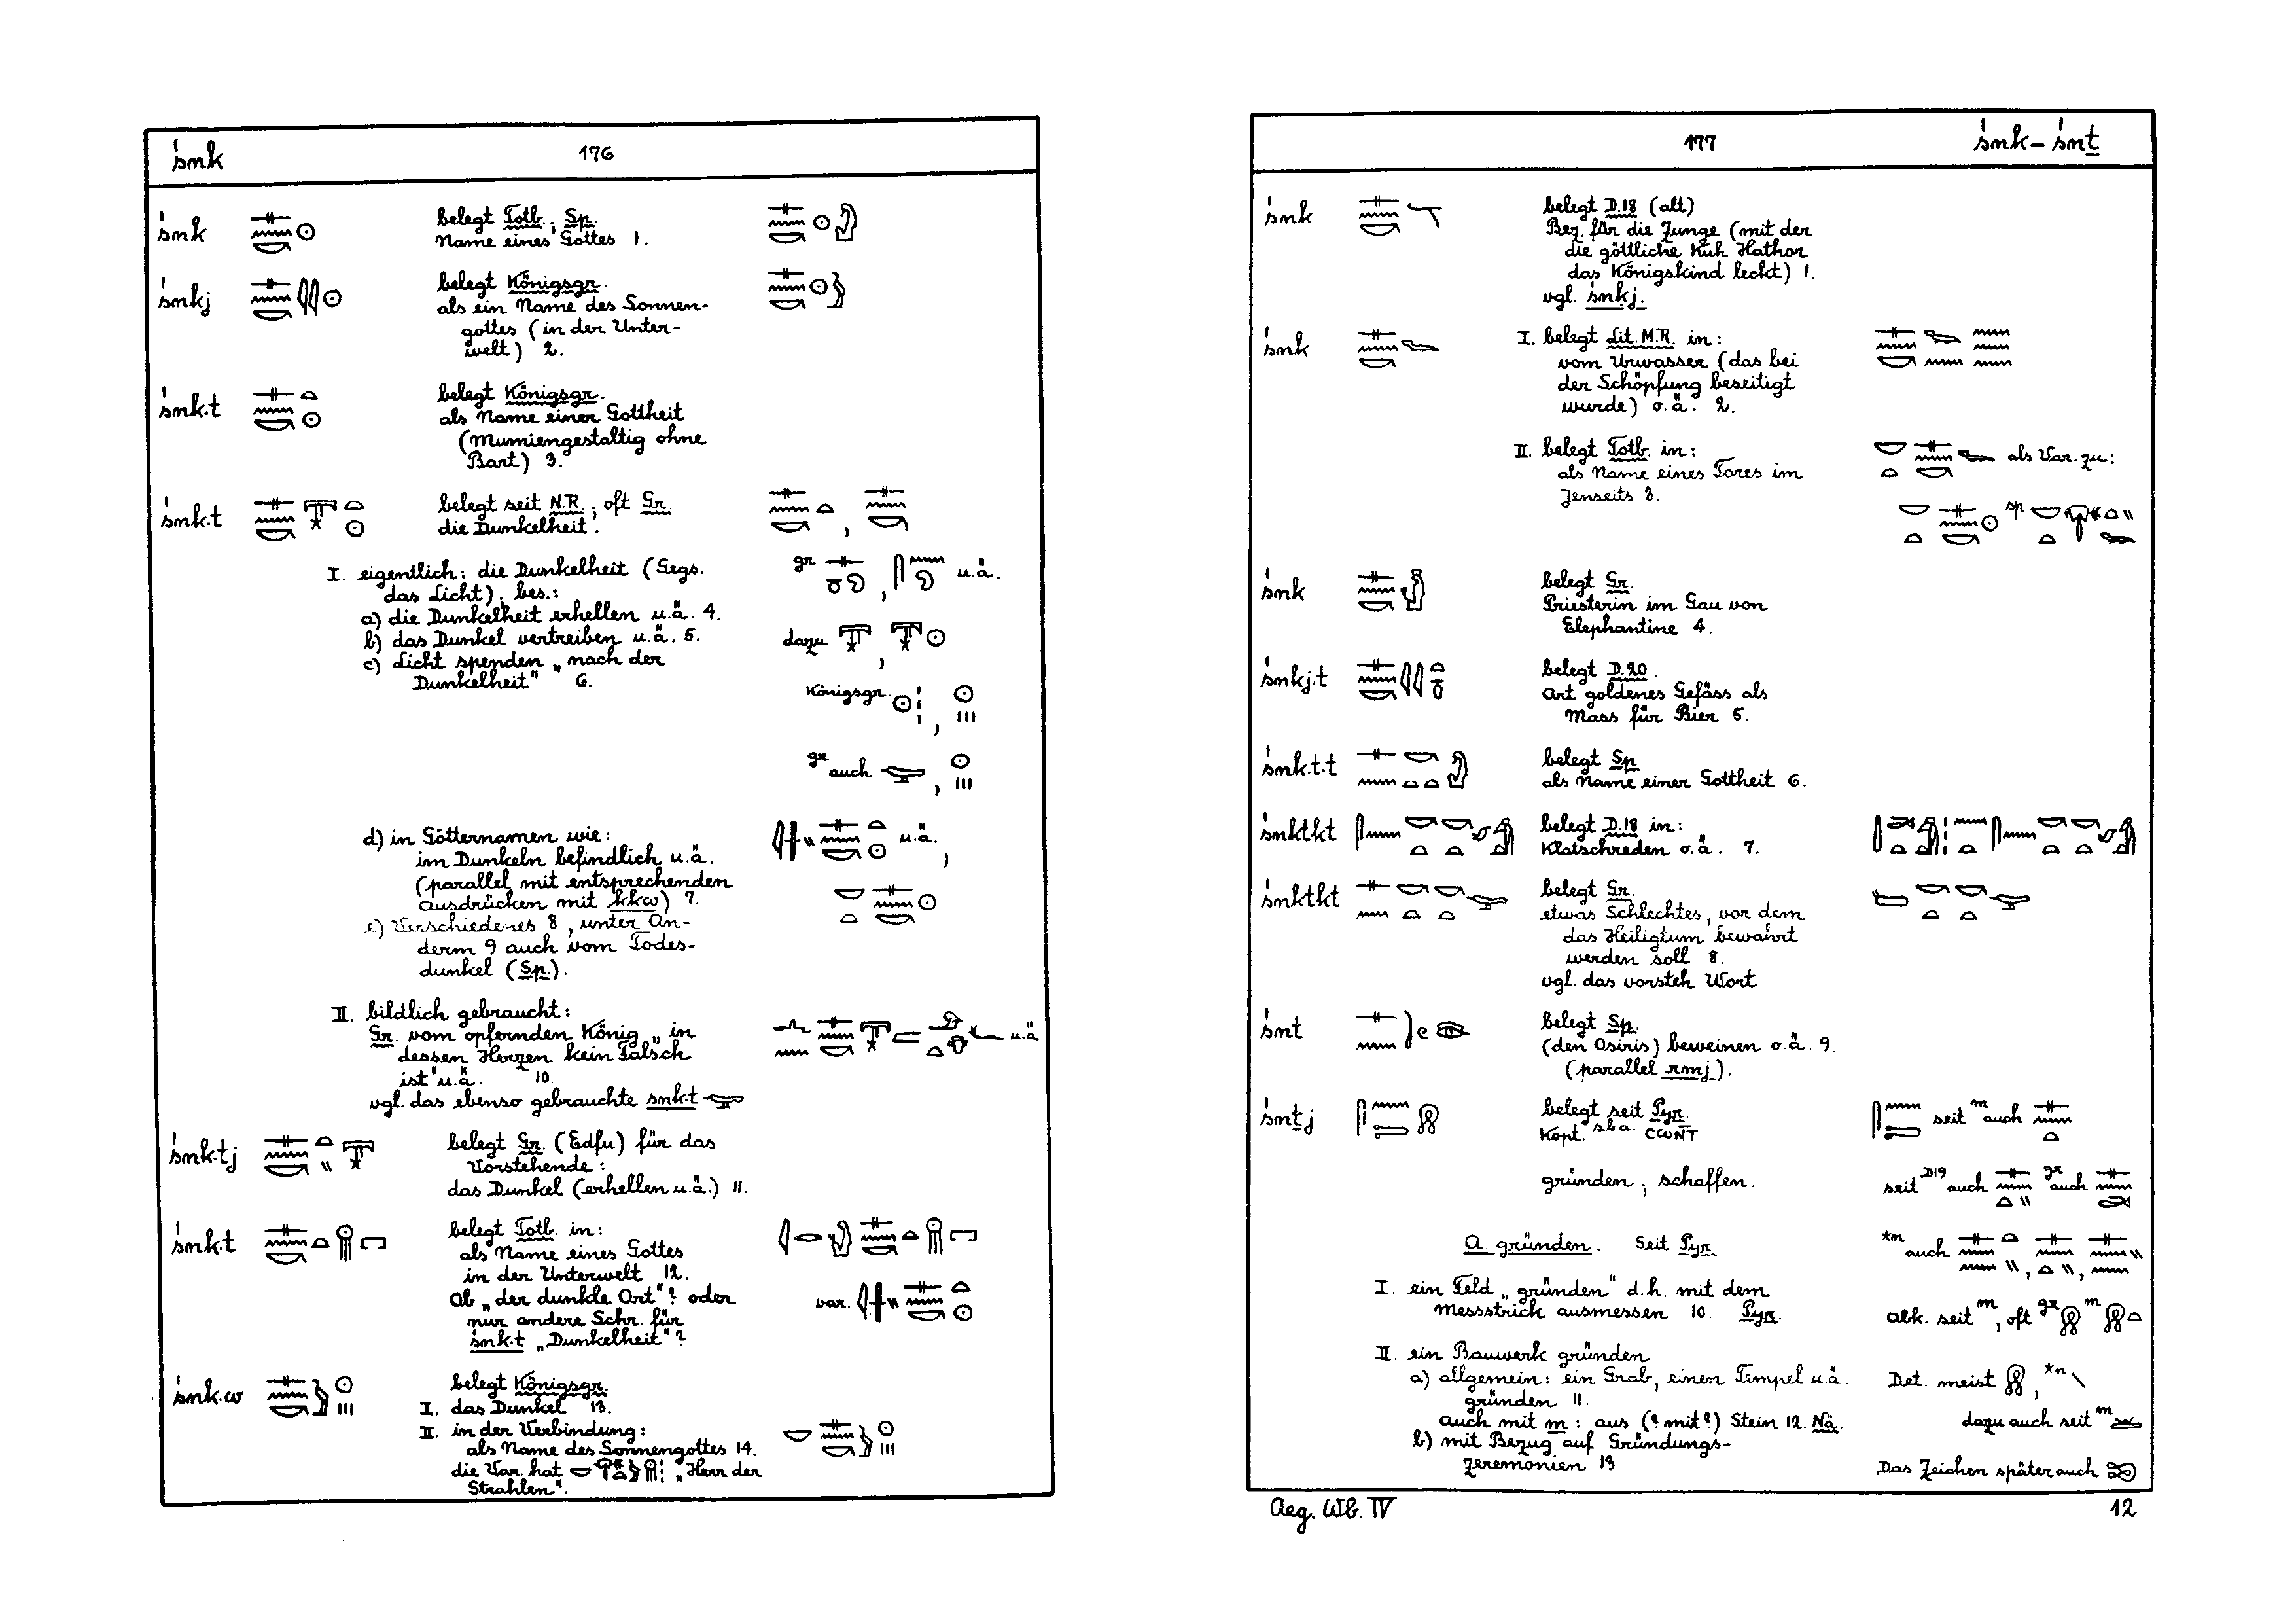 śnk
176
śnk
belegt Totb.; Sp.
Name eines Gottes 1.
śnkj
belegt Königsgr.
als ein Name des Sonnen-
gottes (in der Unter-
welt) 2.
śnk.t
belegt Königsgr.
als Name einer Gottheit
(Mumiengestaltig ohne
Bart) 3.
śnk.t
belegt seit N.R.; oft Gr.
die Dunkelheit.
I. eigentlich: die Dunkelheit (Gegs.
das Licht); bes.:
a) die Dunkelheit erhellen u.ä. 4.
b) das Dunkel vertreiben u.ä. 5.
c) Licht spenden „nach der
Dunkelheit" 6.
gr , u.ä.
dazu ,
Königsgr. ,
gr auch ,
d) in Götternamen wie:
im Dunkeln befindlich u.ä.
(parallel mit entsprechenden
Ausdrücken mit kkw) 7.
u.ä.,
e) Verschiedenes 8, unter An-
derm 9 auch vom Todes-
dunkel (Sp.).
II. bildlich gebraucht:
Gr. vom opfernden König „in
dessen Herzen kein Falsch
ist" u.ä. 10.
u.ä
vgl. das ebenso gebrauchte snk.t
śnk.tj
belegt Gr. (Edfu) für das
Vorstehende:
das Dunkel (erhellen u.ä.) 11.
śnk.t
belegt Totb. in:
als Name eines Gottes
in der Unterwelt 12.
Ob „der dunkle Ort"? oder
nur andere Schr. für
śnk.t „Dunkelheit"?
var.
śnk.w
belegt Königsgr.
I. das Dunkel 13.
II. in der Verbindung:
als Name des Sonnengottes 14.
die Var. hat „Herr der
Strahlen".
177
śnk – śnṯ
śnk
belegt D.18 (alt)
Bez. für die Zunge (mit der
die göttliche Kuh Hathor
das Königskind leckt) 1.
vgl. śnkj.
śnk
I. belegt Lit. M.R. in:
vom Urwasser (das bei
der Schöpfung beseitigt
wurde) o.ä. 2.
II. belegt Totb. in:
als Name eines Tores im
Jenseits 3.
als Var. zu:
sp
śnk
belegt Gr.
Priesterin im Gau von
Elephantine 4.
śnkj.t
belegt D.20.
Art goldenes Gefäss als
Mass für Bier 5.
śnk.t.t
belegt Sp.
als Name einer Gottheit 6.
śnktkt
belegt D.18 in:
Klatschreden o.ä. 7.
śnktkt
belegt Gr.
etwas Schlechtes, vor dem
das Heiligtum bewahrt
werden soll 8.
vgl. das vorsteh Wort.
śnt
belegt Sp.
(den Osiris) beweinen o.ä. 9.
(parallel rmj).
śnṯj
belegt seit Pyr.
Kopt. s.b.a. ⲥⲱⲛⲧ
gründen; schaffen.
seit m auch
seit D19 auch gr auch
*n auch , ,
A. gründen. Seit Pyr.
I. ein Feld „gründen" d.h. mit dem
Messstrick ausmessen 10. Pyr.
Abk. seit m, oft gr m
II. ein Bauwerk gründen
a) allgemein: ein Grab, einen Tempel u.ä.
gründen 11.
auch mit m: aus (? mit?) Stein 12. Nä.
b) mit Bezug auf Gründungs-
zeremonien 13
Det. meist , *n
dazu auch seit m
Das Zeichen später auch
Aeg. Wb. IV
12